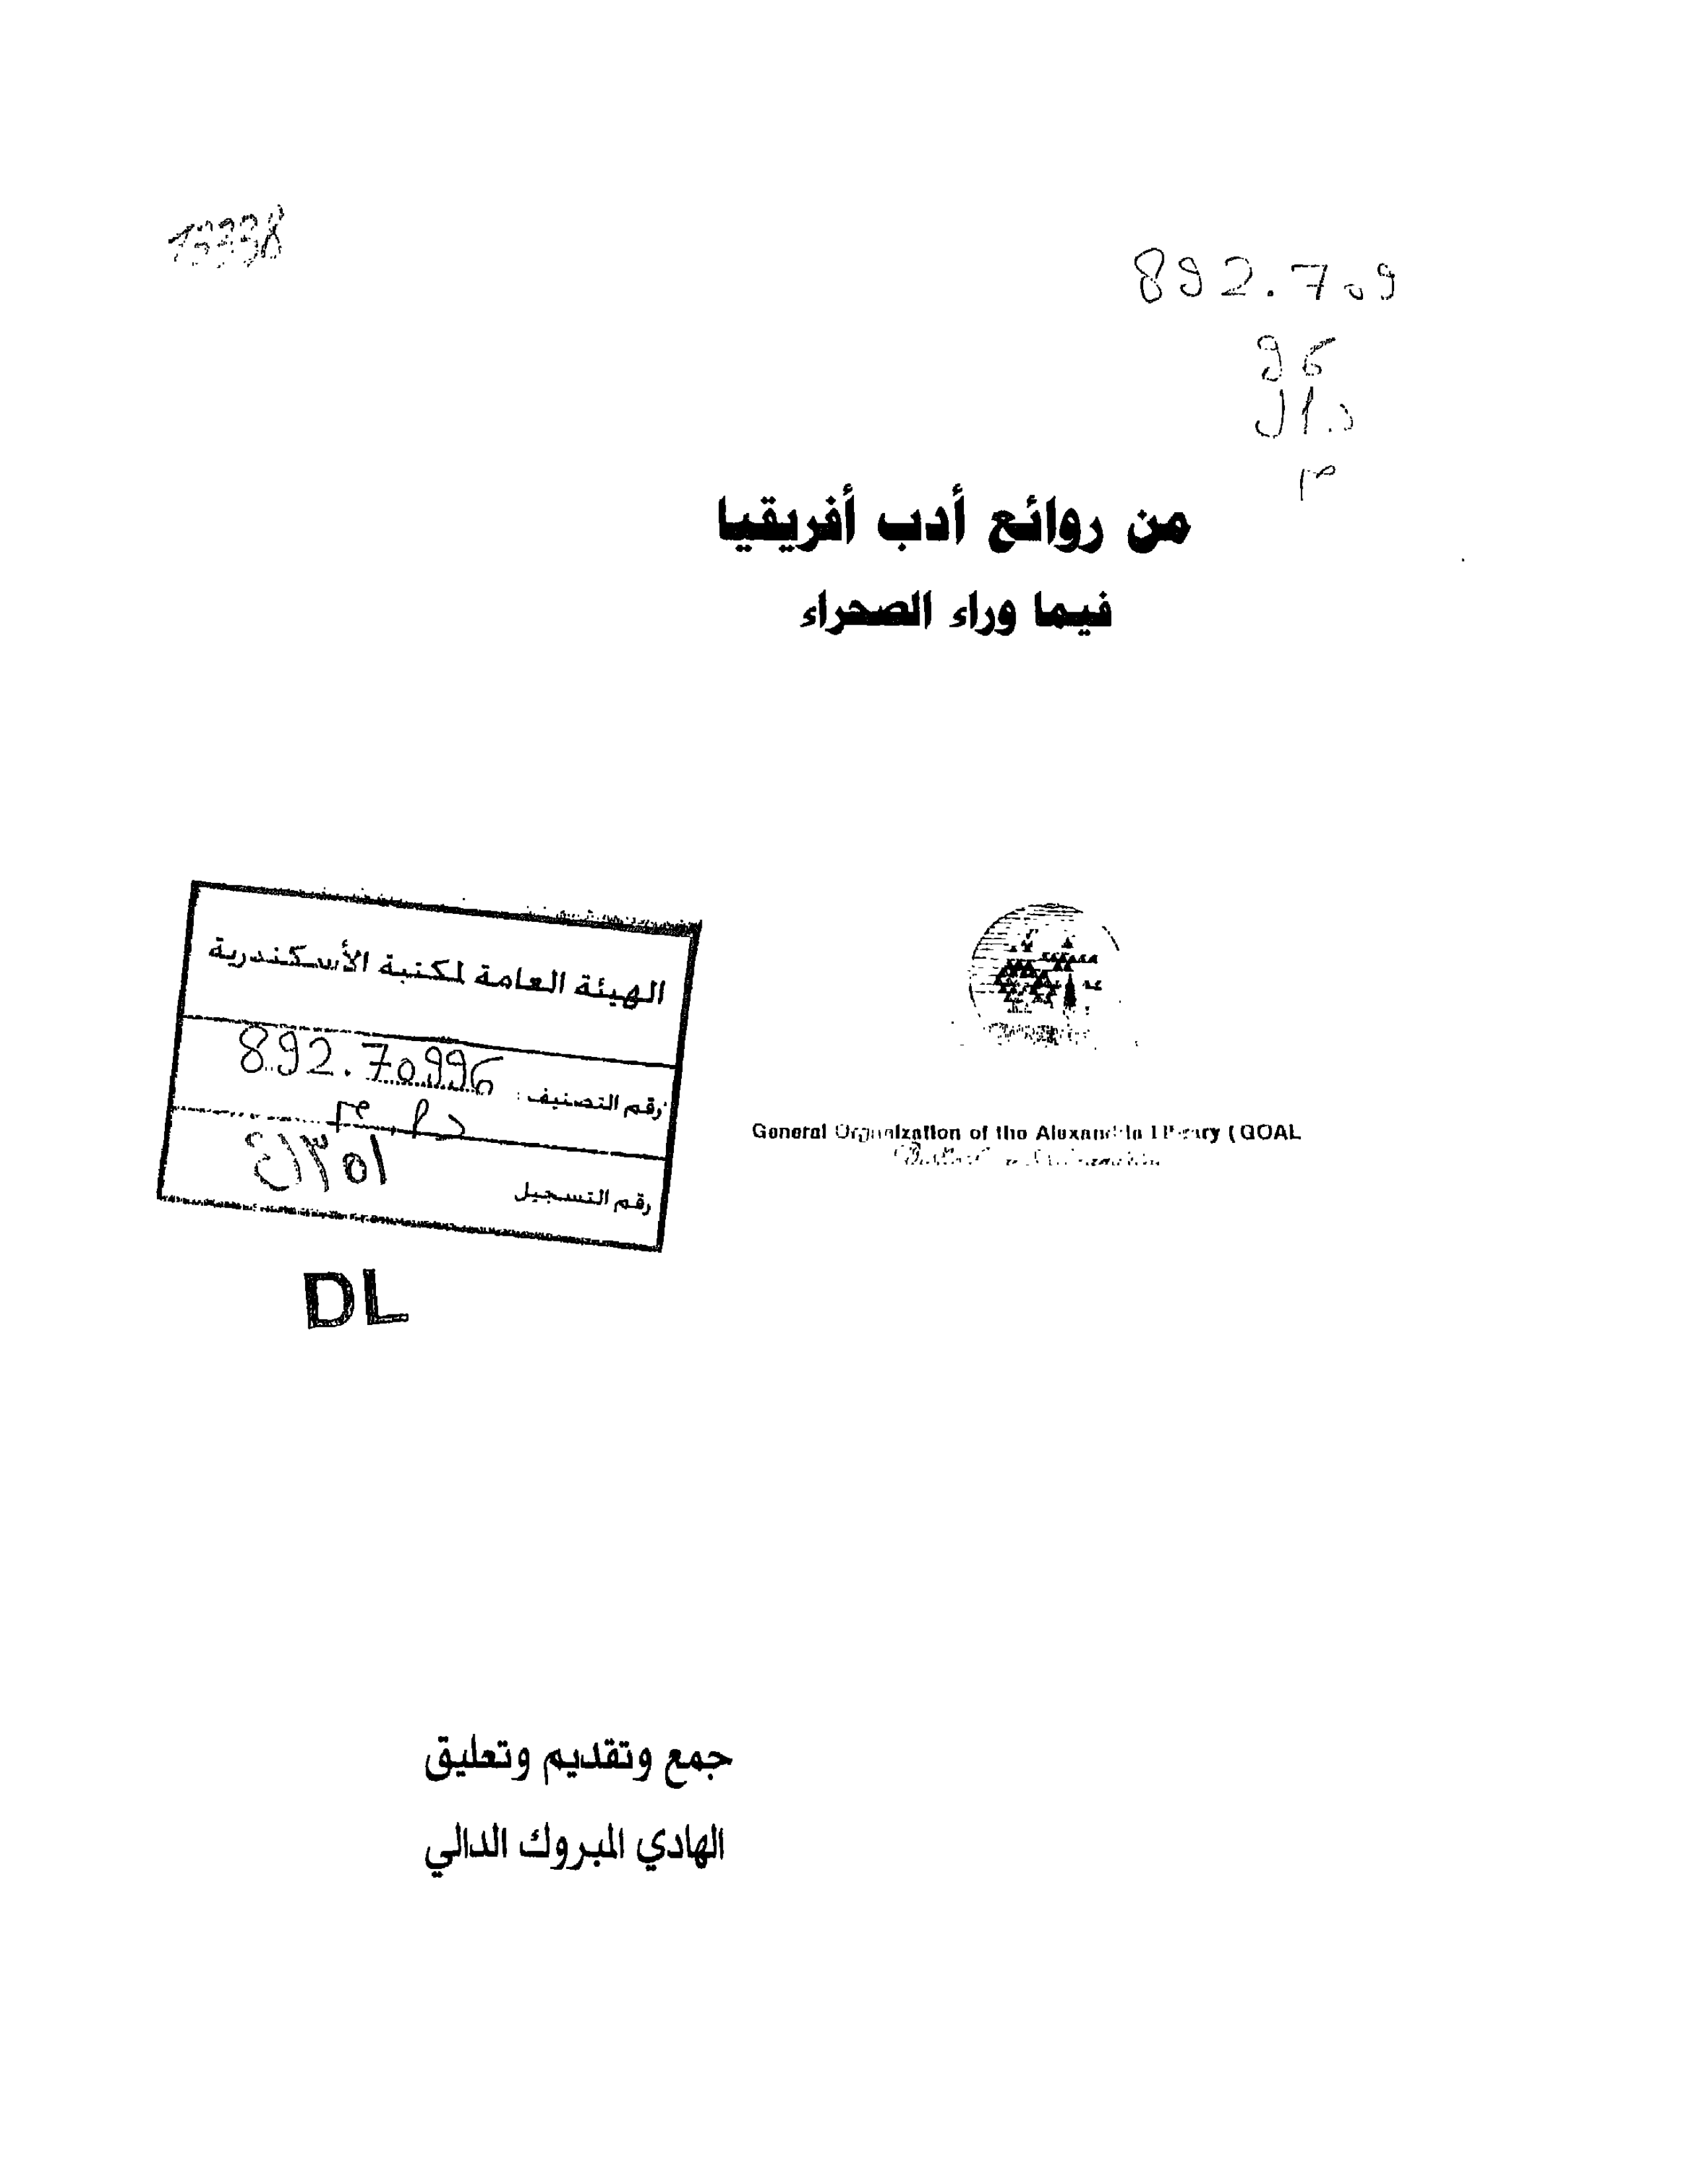 892.709
96
من روائع أدب أفريقيا
فيما وراء الصحراء
الهيئة العامة لمكتبة الأسكندرية
رقم التصنيف : 892.70996
رقم التسجيل
General Organization of the Alexandria Library (GOAL
DL
جمع وتقديم وتعليق
الهادي المبروك الدالي